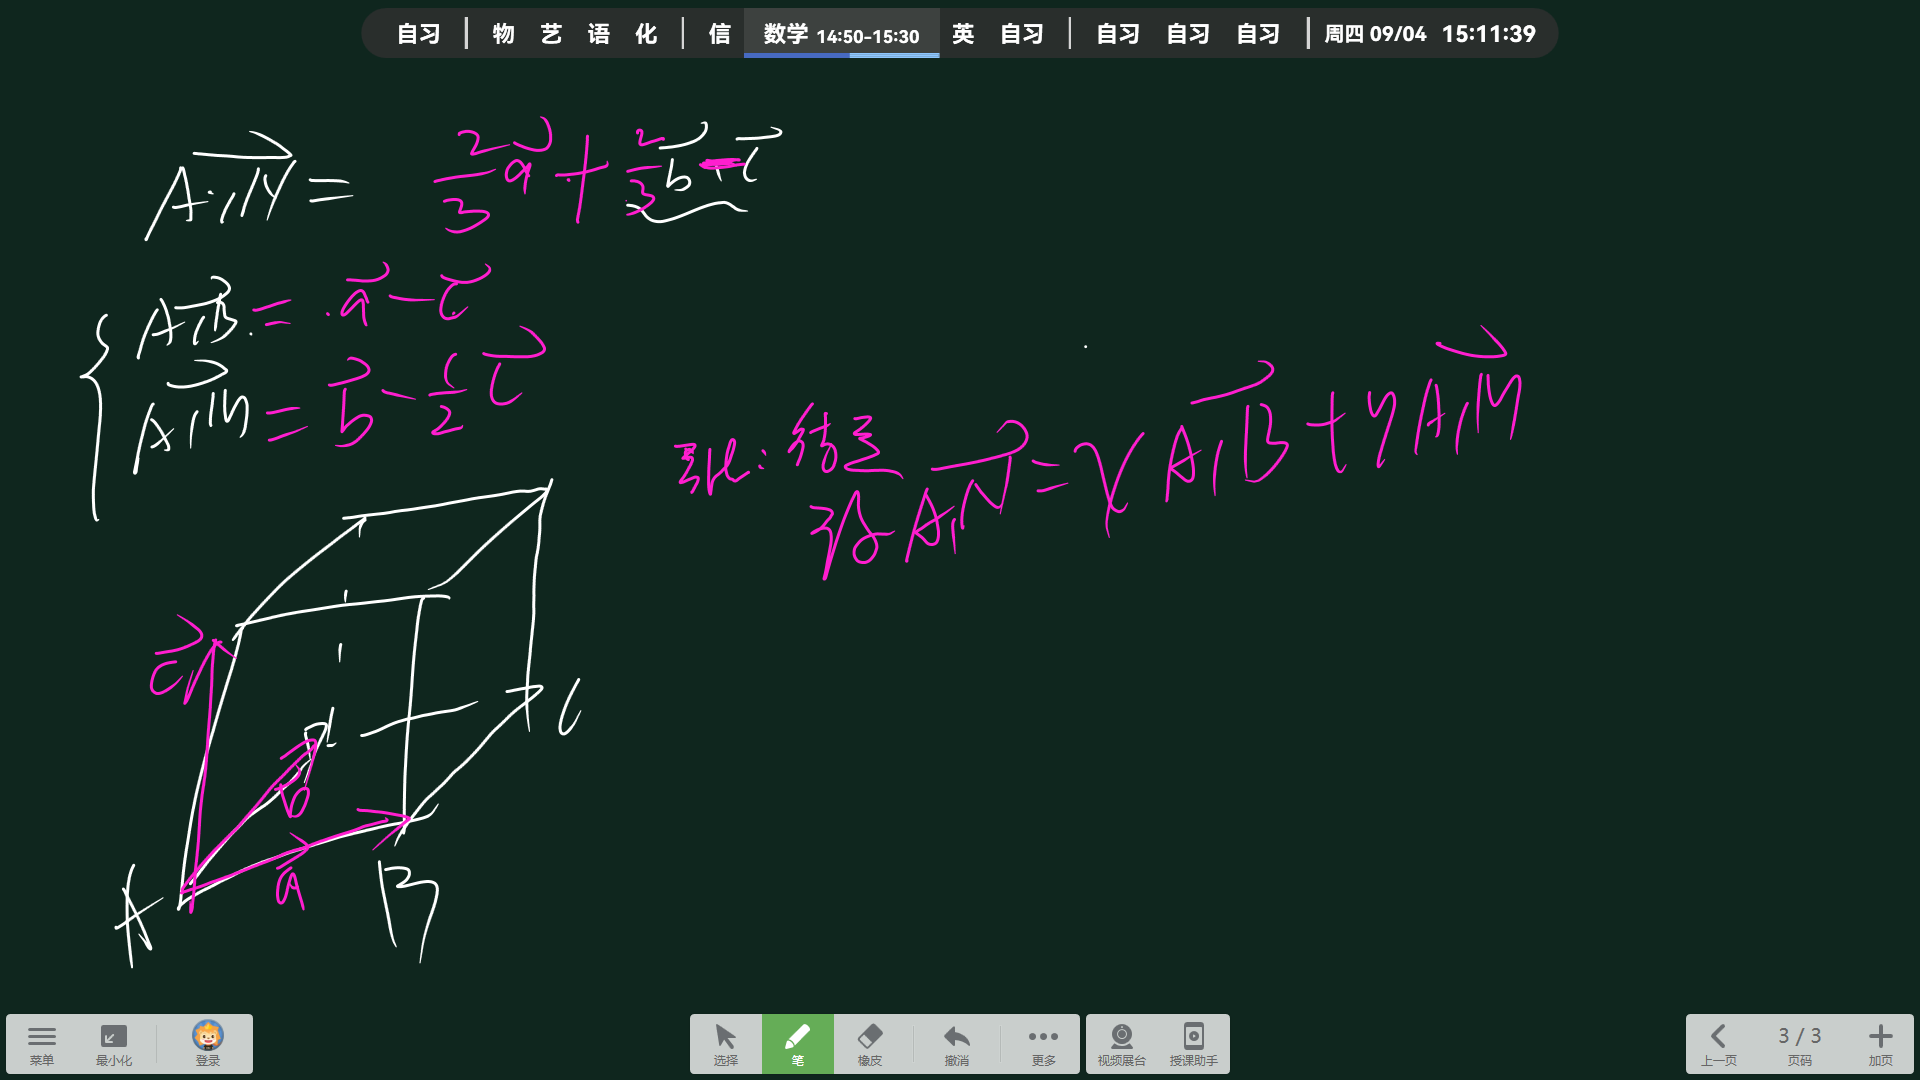 自习 | 物 艺 语 化 | 信 数学 14:50-15:30 英 自习 | 自习 自习 自习 | 周四 09/04 15:11:39
A₁N = 2/3 a + 2/3 b - c
A₁B = a - c
A₁M = b - 1/2 c
结
设 A₁N = x A₁B + y A₁M
c
b
a
A
B
C
菜单 最小化 登录 选择 笔 橡皮 撤消 更多 视频展台 授课助手 上一页 3 / 3 页码 加页